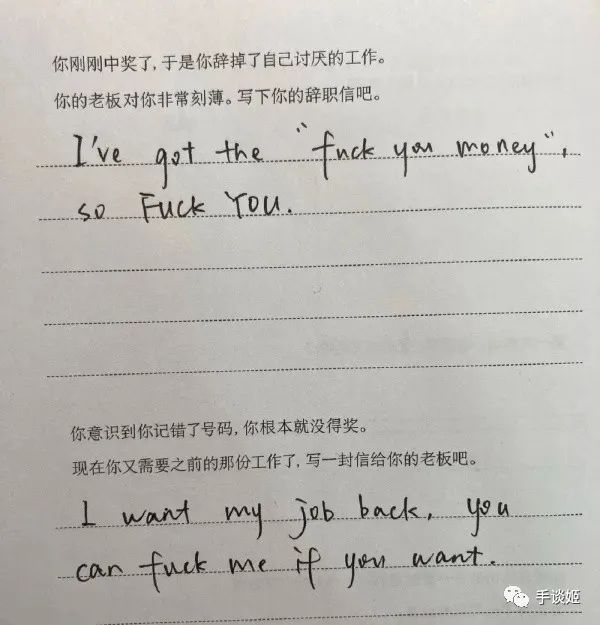 你刚刚中奖了,于是你辞掉了自己讨厌的工作。
你的老板对你非常刻薄。写下你的辞职信吧。
I've got the "fuck you money",
so Fuck YOU.
你意识到你记错了号码,你根本就没得奖。
现在你又需要之前的那份工作了,写一封信给你的老板吧。
I want my job back, you
can fuck me if you want.
手谈姬